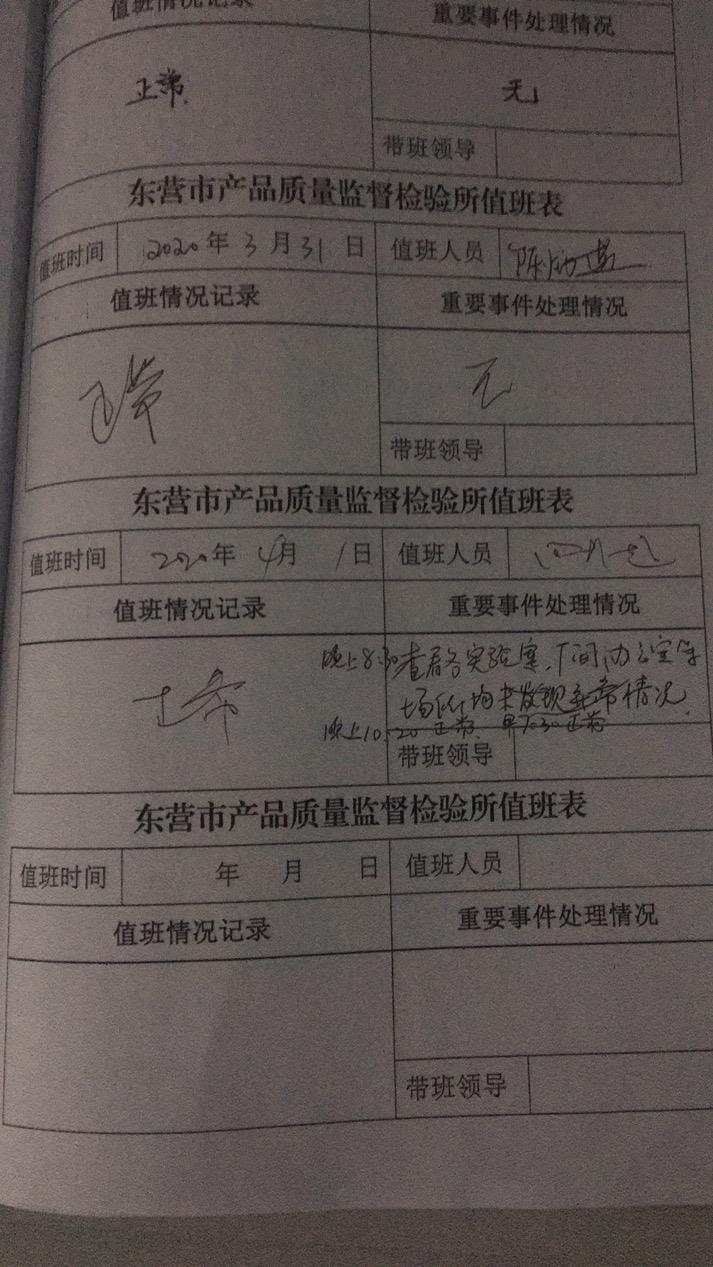 值班情况记录 重要事件处理情况
正常. 无
带班领导
东营市产品质量监督检验所值班表
值班时间 2020年3月31日 值班人员
值班情况记录 重要事件处理情况
正常 无
带班领导
东营市产品质量监督检验所值班表
值班时间 2020年4月1日 值班人员
值班情况记录 重要事件处理情况
正常 晚上8:30查看各实验室、车间办公室等
场所均未发现异常情况.
晚上10:20 正常. 早7:30正常
带班领导
东营市产品质量监督检验所值班表
值班时间 年 月 日 值班人员
值班情况记录 重要事件处理情况
带班领导